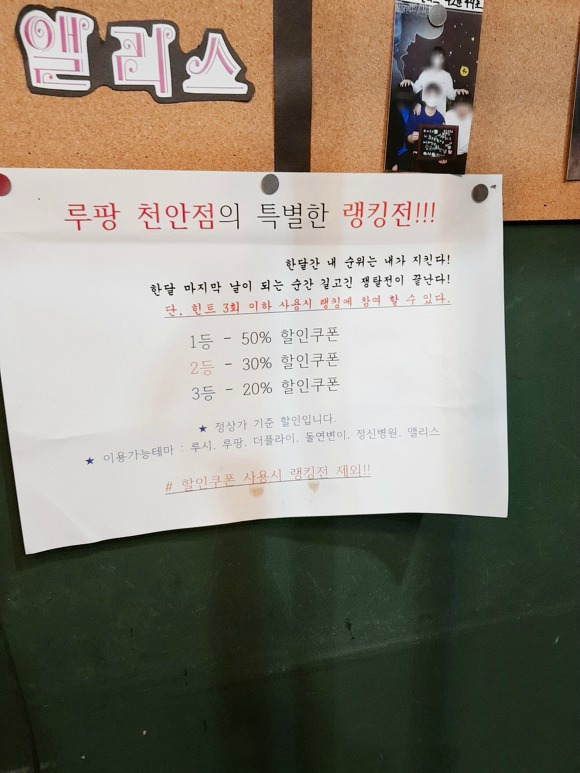 앨리스
루팡 천안점의 특별한 랭킹전!!!
한달간 내 순위는 내가 지킨다!
한달 마지막 날이 되는 순간 길고긴 쟁탈전이 끝난다!
단, 힌트 3회 이하 사용시 랭킹에 참여 할 수 있다.
1등 - 50% 할인쿠폰
2등 - 30% 할인쿠폰
3등 - 20% 할인쿠폰
★ 정상가 기준 할인입니다.
★ 이용가능테마 : 루시, 루팡, 더플라이, 돌연변이, 정신병원, 앨리스
# 할인쿠폰 사용시 랭킹전 제외!!